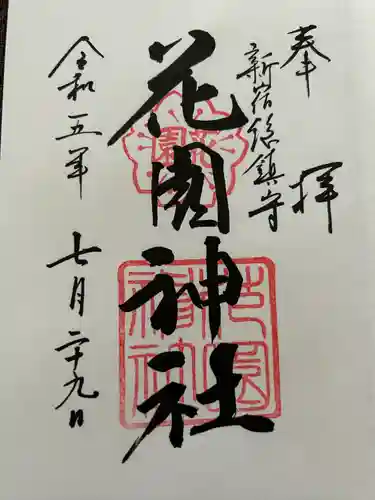 奉拝
新宿総鎮守
花園神社
令和五年七月二十九日
花園
花園神社